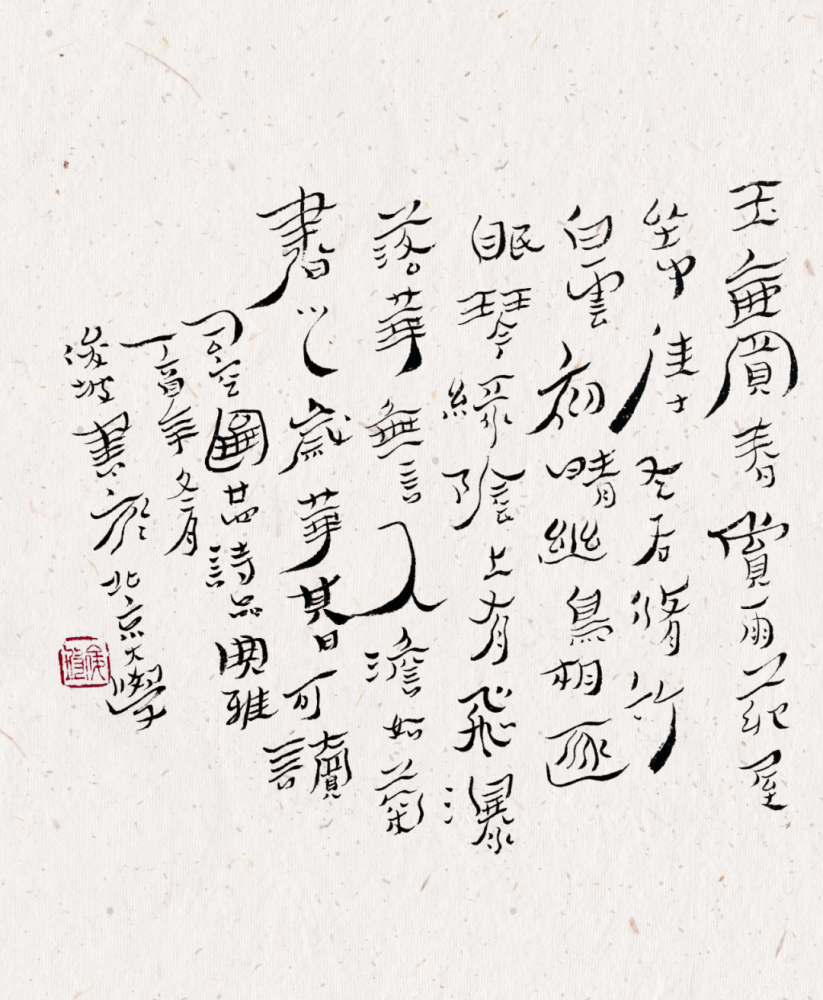 玉壺買春賞雨茆屋
坐中佳士左右脩竹
白雲初晴幽鳥相逐
眠琴綠陰上有飛瀑
落華無言人澹如菊
書之歲華其曰可讀
司空圖廿四詩品典雅
丁酉年冬月
俊坡書於北京大學